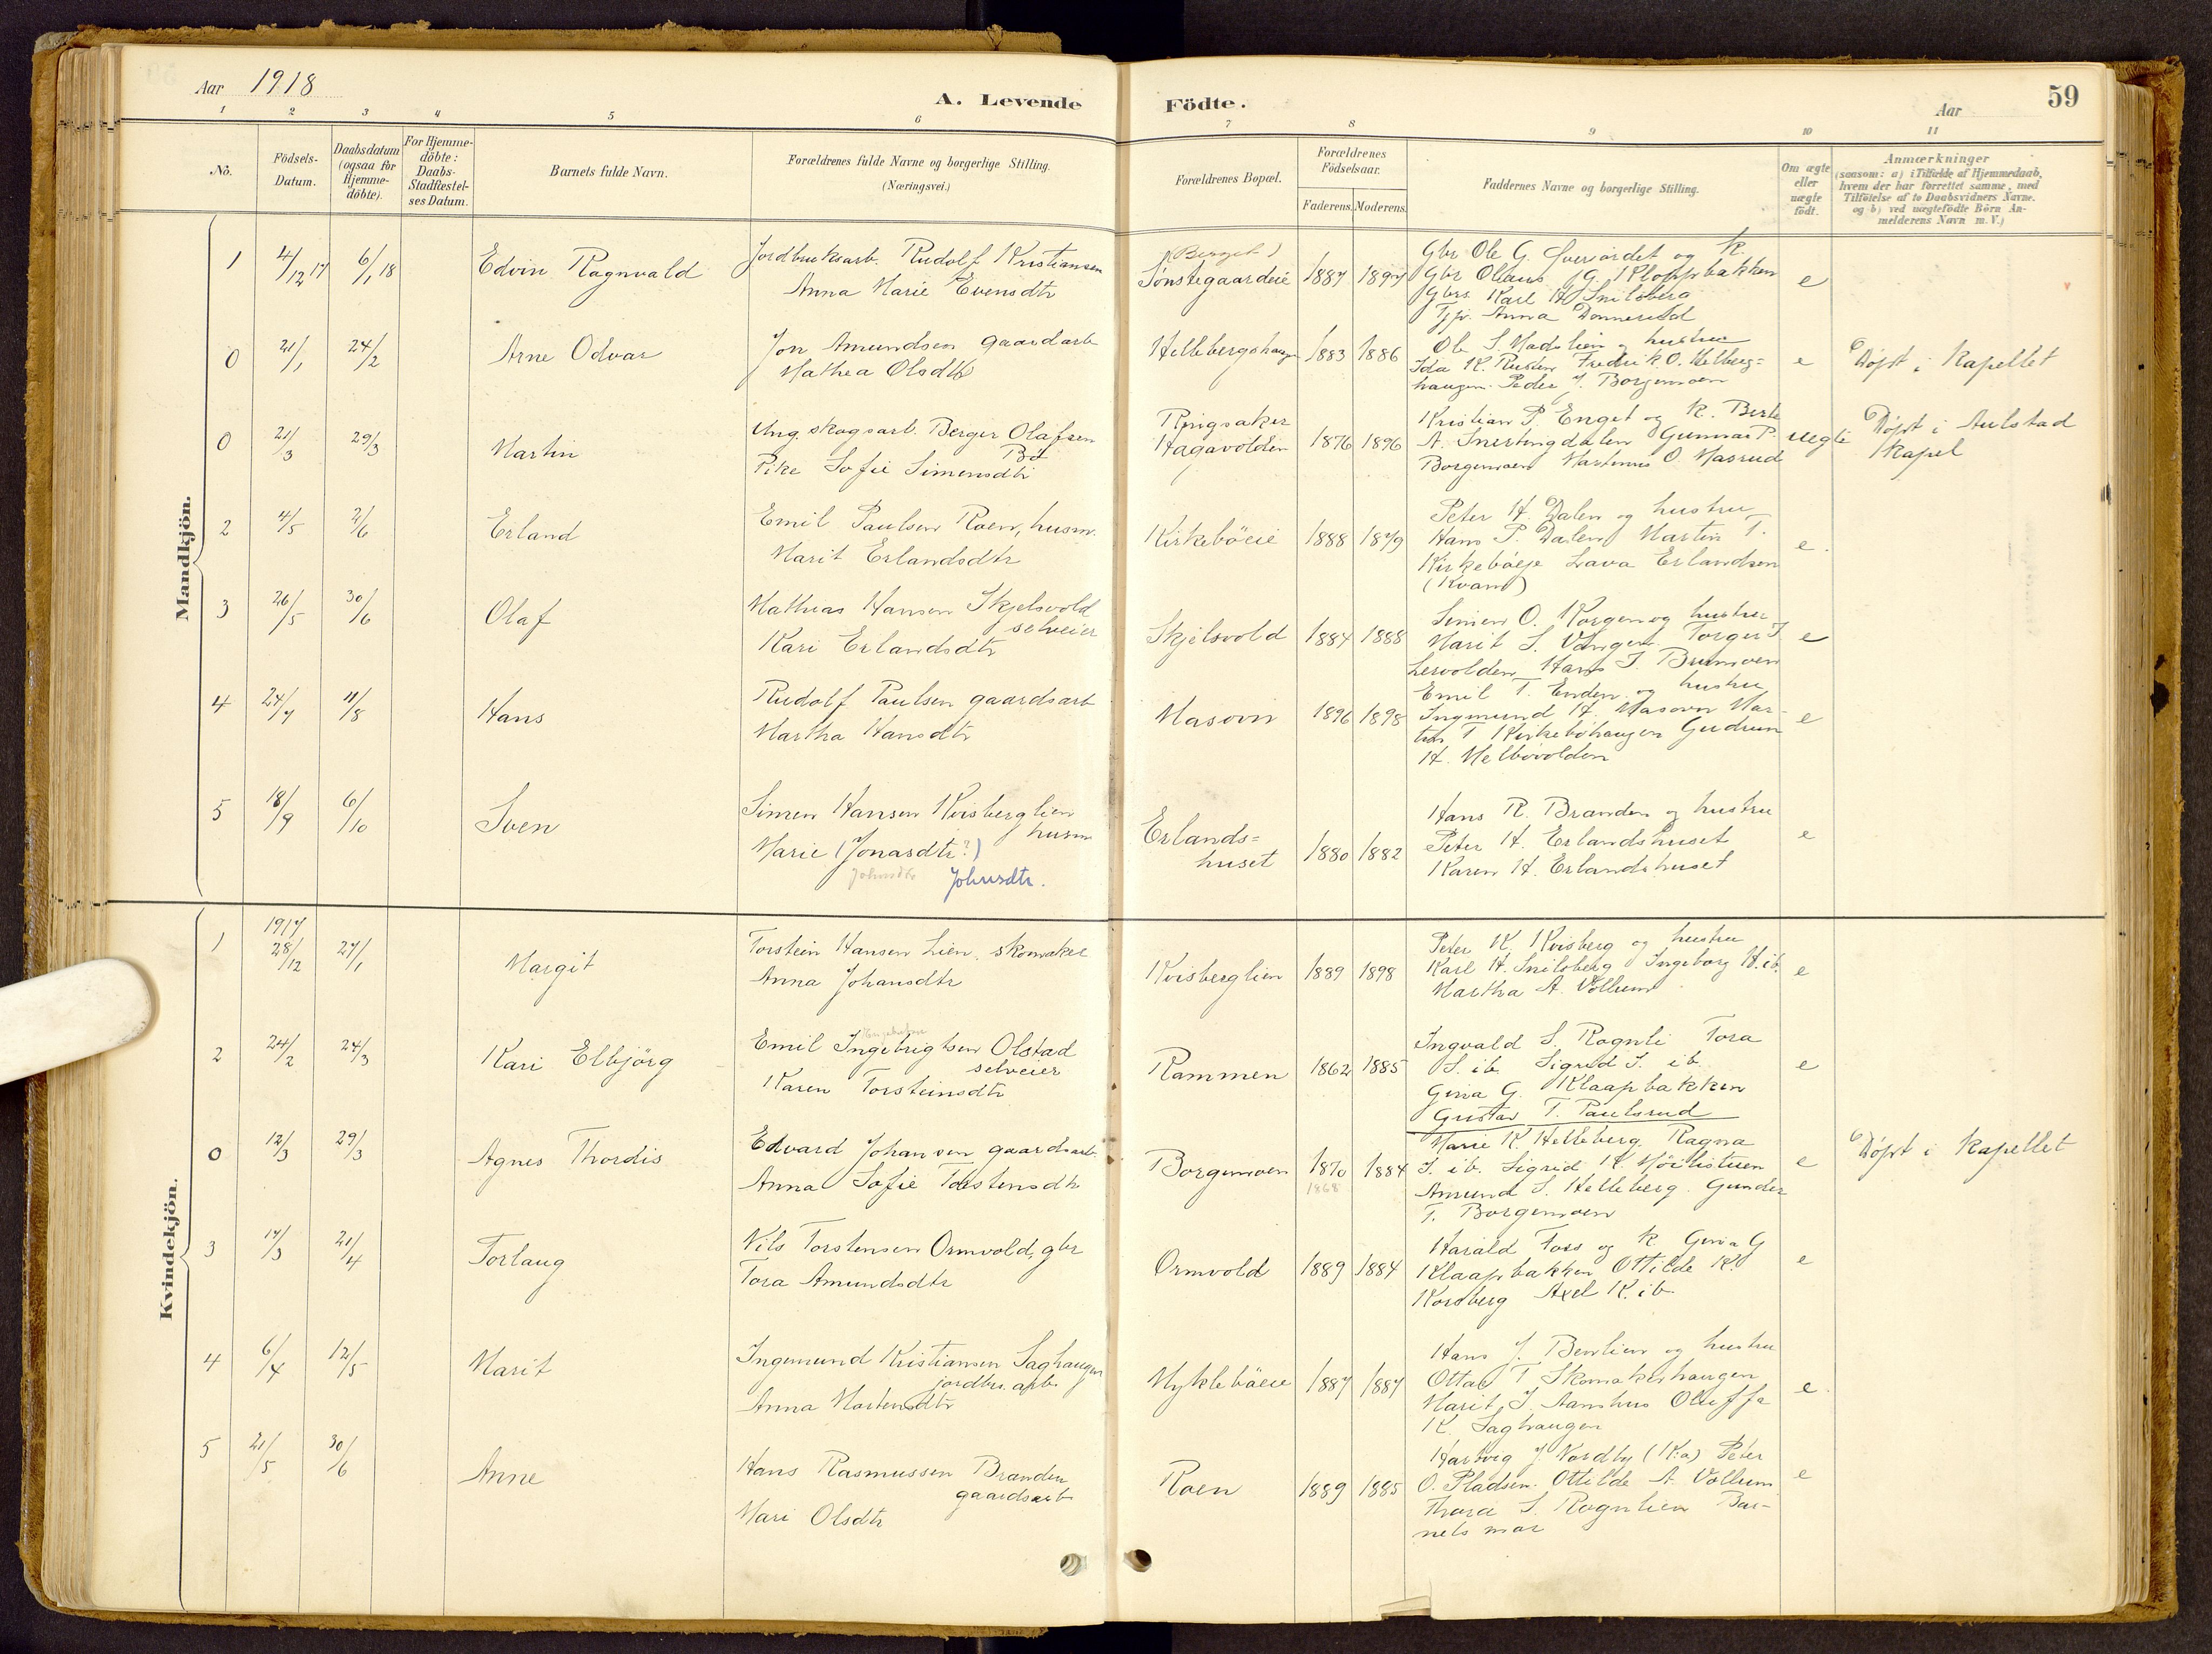 Aar 1918
A. Levende Födte.
Aar
59
1 2 3 4 5 6 7 8 9 10 11
No.
Födsels-Datum.
Daabsdatum (ogsaa for Hjemme-döbte).
For Hjemme-döbte: Daabs-Stadfestel-ses Datum.
Barnets fulde Navn.
Forældrenes fulde Navne og borgerlige Stilling.
(Næringsvei.)
Forældrenes Bopæl.
Forældrenes Födselsaar.
Faderens. Moderens.
Faddernes Navne og borgerlige Stilling.
Om ægte eller uægte födt.
Anmærkninger
(saasom: a) i Tilfælde af Hjemmedaab,
hvem der har forrettet samme, med
Tilföielse af to Daabsvidners Navne.
og b) ved uægtefödte Börn An-
melderens Navn m. V.)
Mandkjön.
1 4/12 17 6/1 18 Edvin Ragnvald
Jordbruksarb. Rudolf Kristiansen
Anna Marie Evensdtr
(Berget)
Sønstegaardeie 1887 1897
Gbr Ole G. Sveiordet og K.
Gbr Olaus G. Kloppbakken
Gbrs. Karl H. Snilsberg
Tjp. Anna
e
0 21/1 24/2 Arne Odvar
Jon Amundsen gaardarb
Mathea Olsdtr
Hellebergshaugen 1883 1886
Ole S. Madslien og hustru
Ida K. Rusten Fredrik O. Helberg=
haugen. Peder J. Borgemoen
e
Døpt i Kapellet
0 21/3 29/3 Martin
Ung. skogsarb. Berger Olafsen
Bø
Pike Sofie Simensdtr
Ringsaker
Hagavolden 1876 1896
Kristian P. Enget og K. Berte
A. Snertingdalen Gunnar P.
Borgemoen Martinus O. Masrud
uegte
Døpt i Aulstad
Kapel
2 4/5 2/6 Erland
Emil Paulsen Roen, husm.
Marit Erlandsdtr
Kirkeböeie 1888 1879
Peter H. Dalen og hustru
Hans P. Dalen Martin T.
Kirkebøeje Lava Erlandsen
(Kvam)
e.
3 26/5 30/6 Olaf
Mathias Hansen Skjelsvold
selveier
Kari Erlandsdtr
Skjelsvold 1884 1888
Simen O. Korgen og hustru
Marit S. Vangen Torger I.
Lervolden Hans I. Brumoen
e
4 24/7 11/8 Hans
Rudolf Paulsen gaardsarb
Martha Hansdtr
Masovn 1896 1898
Emil T. Enden og hustru
Ingmund H. Masovn Mar-
tin T Kirkebøhaugen Gudrun
H. Melbövolden
e
5 18/9 6/10 Sven
Simen Hansen Kvisberglien
husm
Marie (Jonasdtr?)
Johnsdtr Johnsdtr.
Erlands=
huset 1880 1882
Hans R. Branden og hustru
Peter H. Erlandshuset
Karen H. Erlandshuset
e
Kvindekjön.
1917
1 28/12 27/1 Margit
Torstein Hansen Lien, skomaker
Anna Johansdtr
Kvisberglien 1889 1898
Peter K. Kvisberg og hustru
Karl H. Snilsberg Ingeborg H. ib.
Martha A. Vollum
e
2 24/2 24/3 Kari Elbjörg
Emil Ingebrigtsen Olstad
selveier
Karen Torsteinsdtr
Rammen 1862 1885
Ingvald S. Rognli Tora
S. ib. Sigrid S. ib.
Gina G. Klaapbakken
Gustav T. Paulsrud
e
0 12/3 29/3 Agnes Thordis
Edvard Johansen gaardsarb.
Anna Sofie Torstensdtr
Borgemoen 1870 1884
1868
Marie K. Helleberg. Ragna
J. ib. Sigrid K. Möilistuen
Amund S. Helleberg. Gunder
T. Borgemoen
e
Döpt i Kapellet
3 17/3 21/4 Torlaug
Nils Torstensen Ormvold, gbr
Tora Amundsdtr
Ormvold 1889 1884
Harald Foss og K. Gina G
Klaapbakken Ottilde K.
Korsberg Axel K. ib.
e
4 6/4 12/5 Marit
Ingemund Kristiansen Saghaugen
jordbr. arb.
Anna Mortensdtr
Myklebøeie 1887 1887
Hans J. Benlien og hustru
Ottar T Skomakerhaugen
Marit J. Aamhus Oluffa
K. Saghaugen
e.
5 21/5 30/6 Anne
Hans Rasmussen Branden
gaardsarb
Mari Olsdtr
Roen 1889 1885
Hartvig J. Nordby (K:a) Peter
O. Pladsen. Ottilde A. Vollum
Thora S. Rognlien Bar-
nets mor
e